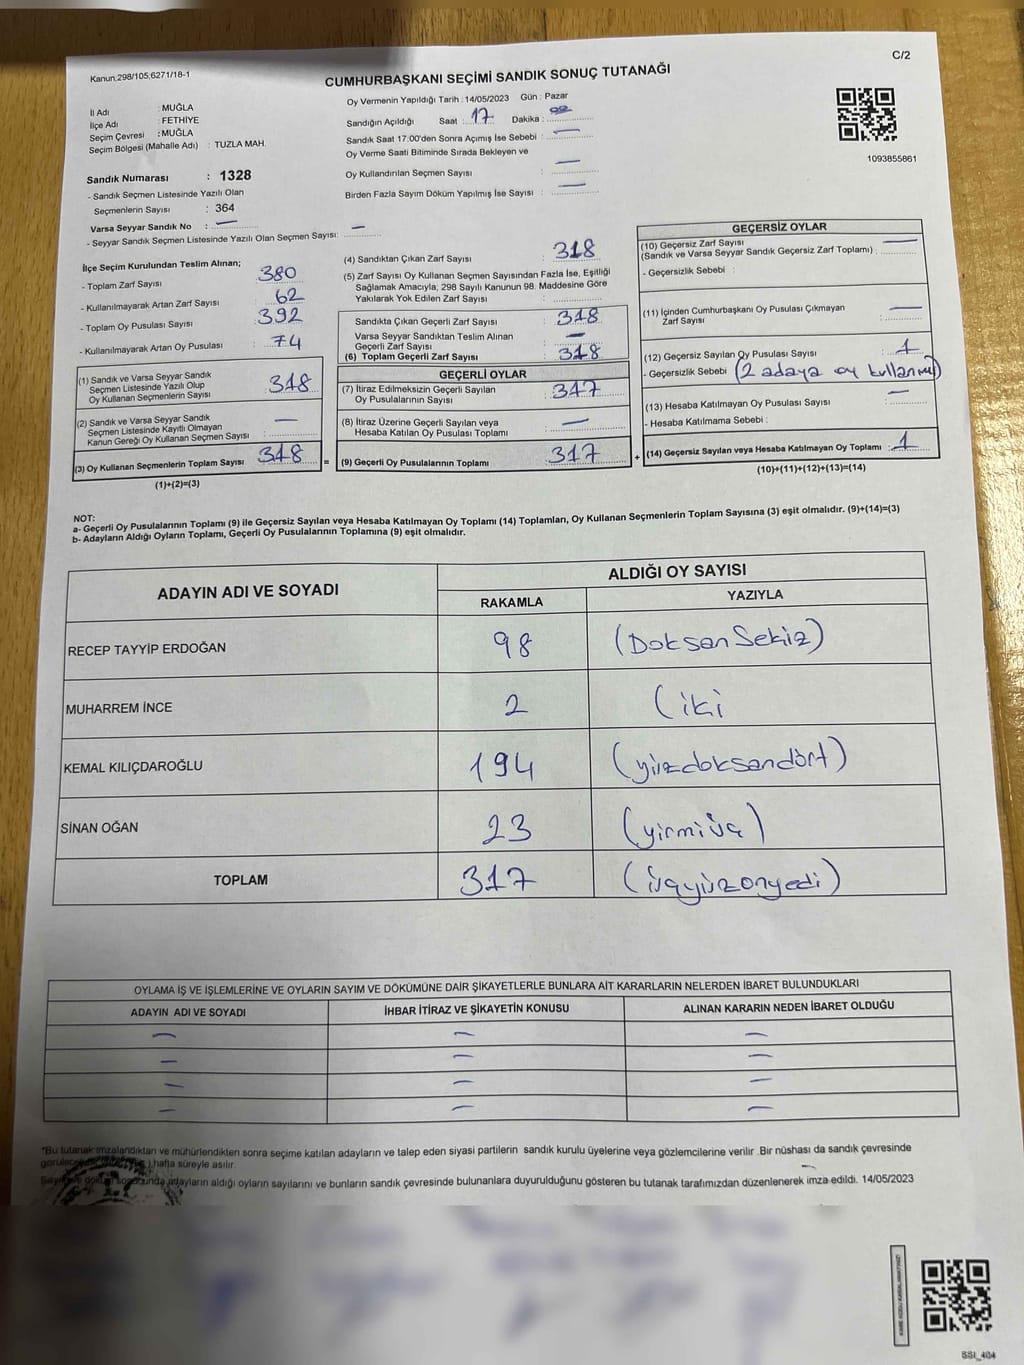 C/2
Kanun.298/105;6271/18-1
CUMHURBAŞKANI SEÇİMİ SANDIK SONUÇ TUTANAĞI
İl Adı : MUĞLA
İlçe Adı : FETHİYE
Seçim Çevresi : MUĞLA
Seçim Bölgesi (Mahalle Adı) : TUZLA MAH.
Oy Vermenin Yapıldığı Tarih : 14/05/2023 Gün : Pazar
Sandığın Açıldığı Saat : 17 Dakika :
Sandık Saat 17:00'den Sonra Açımış İse Sebebi : —
Oy Verme Saati Bitiminde Sırada Bekleyen ve
Oy Kullandırılan Seçmen Sayısı : —
Birden Fazla Sayım Döküm Yapılmış İse Sayısı : —
1093855861
Sandık Numarası : 1328
- Sandık Seçmen Listesinde Yazılı Olan
Seçmenlerin Sayısı : 364
Varsa Seyyar Sandık No : —
- Seyyar Sandık Seçmen Listesinde Yazılı Olan Seçmen Sayısı: —
İlçe Seçim Kurulundan Teslim Alınan;
- Toplam Zarf Sayısı : 380
- Kullanılmayarak Artan Zarf Sayısı : 62
- Toplam Oy Pusulası Sayısı : 392
- Kullanılmayarak Artan Oy Pusulası : 74
(1) Sandık ve Varsa Seyyar Sandık
Seçmen Listesinde Yazılı Olup
Oy Kullanan Seçmenlerin Sayısı : 318
(2) Sandık ve Varsa Seyyar Sandık
Seçmen Listesinde Kayıtlı Olmayan
Kanun Gereği Oy Kullanan Seçmen Sayısı : —
(3) Oy Kullanan Seçmenlerin Toplam Sayısı 318
(1)+(2)=(3)
=
(4) Sandıktan Çıkan Zarf Sayısı : 318
(5) Zarf Sayısı Oy Kullanan Seçmen Sayısından Fazla İse, Eşitliği
Sağlamak Amacıyla, 298 Sayılı Kanunun 98. Maddesine Göre
Yakılarak Yok Edilen Zarf Sayısı :
Sandıkta Çıkan Geçerli Zarf Sayısı : 318
Varsa Seyyar Sandıktan Teslim Alınan
Geçerli Zarf Sayısı : —
(6) Toplam Geçerli Zarf Sayısı : 318
GEÇERLİ OYLAR
(7) İtiraz Edilmeksizin Geçerli Sayılan
Oy Pusulalarının Sayısı : 317
(8) İtiraz Üzerine Geçerli Sayılan veya
Hesaba Katılan Oy Pusulası Toplamı : —
(9) Geçerli Oy Pusulalarının Toplamı : 317
+
GEÇERSİZ OYLAR
(10) Geçersiz Zarf Sayısı
(Sandık ve Varsa Seyyar Sandık Geçersiz Zarf Toplamı) : —
- Geçersizlik Sebebi :
(11) İçinden Cumhurbaşkanı Oy Pusulası Çıkmayan
Zarf Sayısı : —
(12) Geçersiz Sayılan Oy Pusulası Sayısı : 1
- Geçersizlik Sebebi (2 adaya oy kullanmış)
(13) Hesaba Katılmayan Oy Pusulası Sayısı : —
- Hesaba Katılmama Sebebi :
(14) Geçersiz Sayılan veya Hesaba Katılmayan Oy Toplamı : 1
(10)+(11)+(12)+(13)=(14)
NOT:
a- Geçerli Oy Pusulalarının Toplamı (9) ile Geçersiz Sayılan veya Hesaba Katılmayan Oy Toplamı (14) Toplamları, Oy Kullanan Seçmenlerin Toplam Sayısına (3) eşit olmalıdır. (9)+(14)=(3)
b- Adayların Aldığı Oyların Toplamı, Geçerli Oy Pusulalarının Toplamına (9) eşit olmalıdır.
ADAYIN ADI VE SOYADI ALDIĞI OY SAYISI
RAKAMLA YAZIYLA
RECEP TAYYİP ERDOĞAN 98 (Doksan Sekiz)
MUHARREM İNCE 2 (iki
KEMAL KILIÇDAROĞLU 194 (yüzdoksandört)
SİNAN OĞAN 23 (yirmiüç)
TOPLAM 317 (üçyüzonyedi)
OYLAMA İŞ VE İŞLEMLERİNE VE OYLARIN SAYIM VE DÖKÜMÜNE DAİR ŞİKAYETLERLE BUNLARA AİT KARARLARIN NELERDEN İBARET BULUNDUKLARI
ADAYIN ADI VE SOYADI İHBAR İTİRAZ VE ŞİKAYETİN KONUSU ALINAN KARARIN NEDEN İBARET OLDUĞU
— — —
— — —
— — —
— — —
*Bu tutanak imzalandıktan ve mühürlendikten sonra seçime katılan adayların ve talep eden siyasi partilerin sandık kurulu üyelerine veya gözlemcilerine verilir .Bir nüshası da sandık çevresinde
hafta süreyle asılır.
adayların aldığı oyların sayılarını ve bunların sandık çevresinde bulunanlara duyurulduğunu gösteren bu tutanak tarafımızdan düzenlenerek imza edildi. 14/05/2023
SSI_404